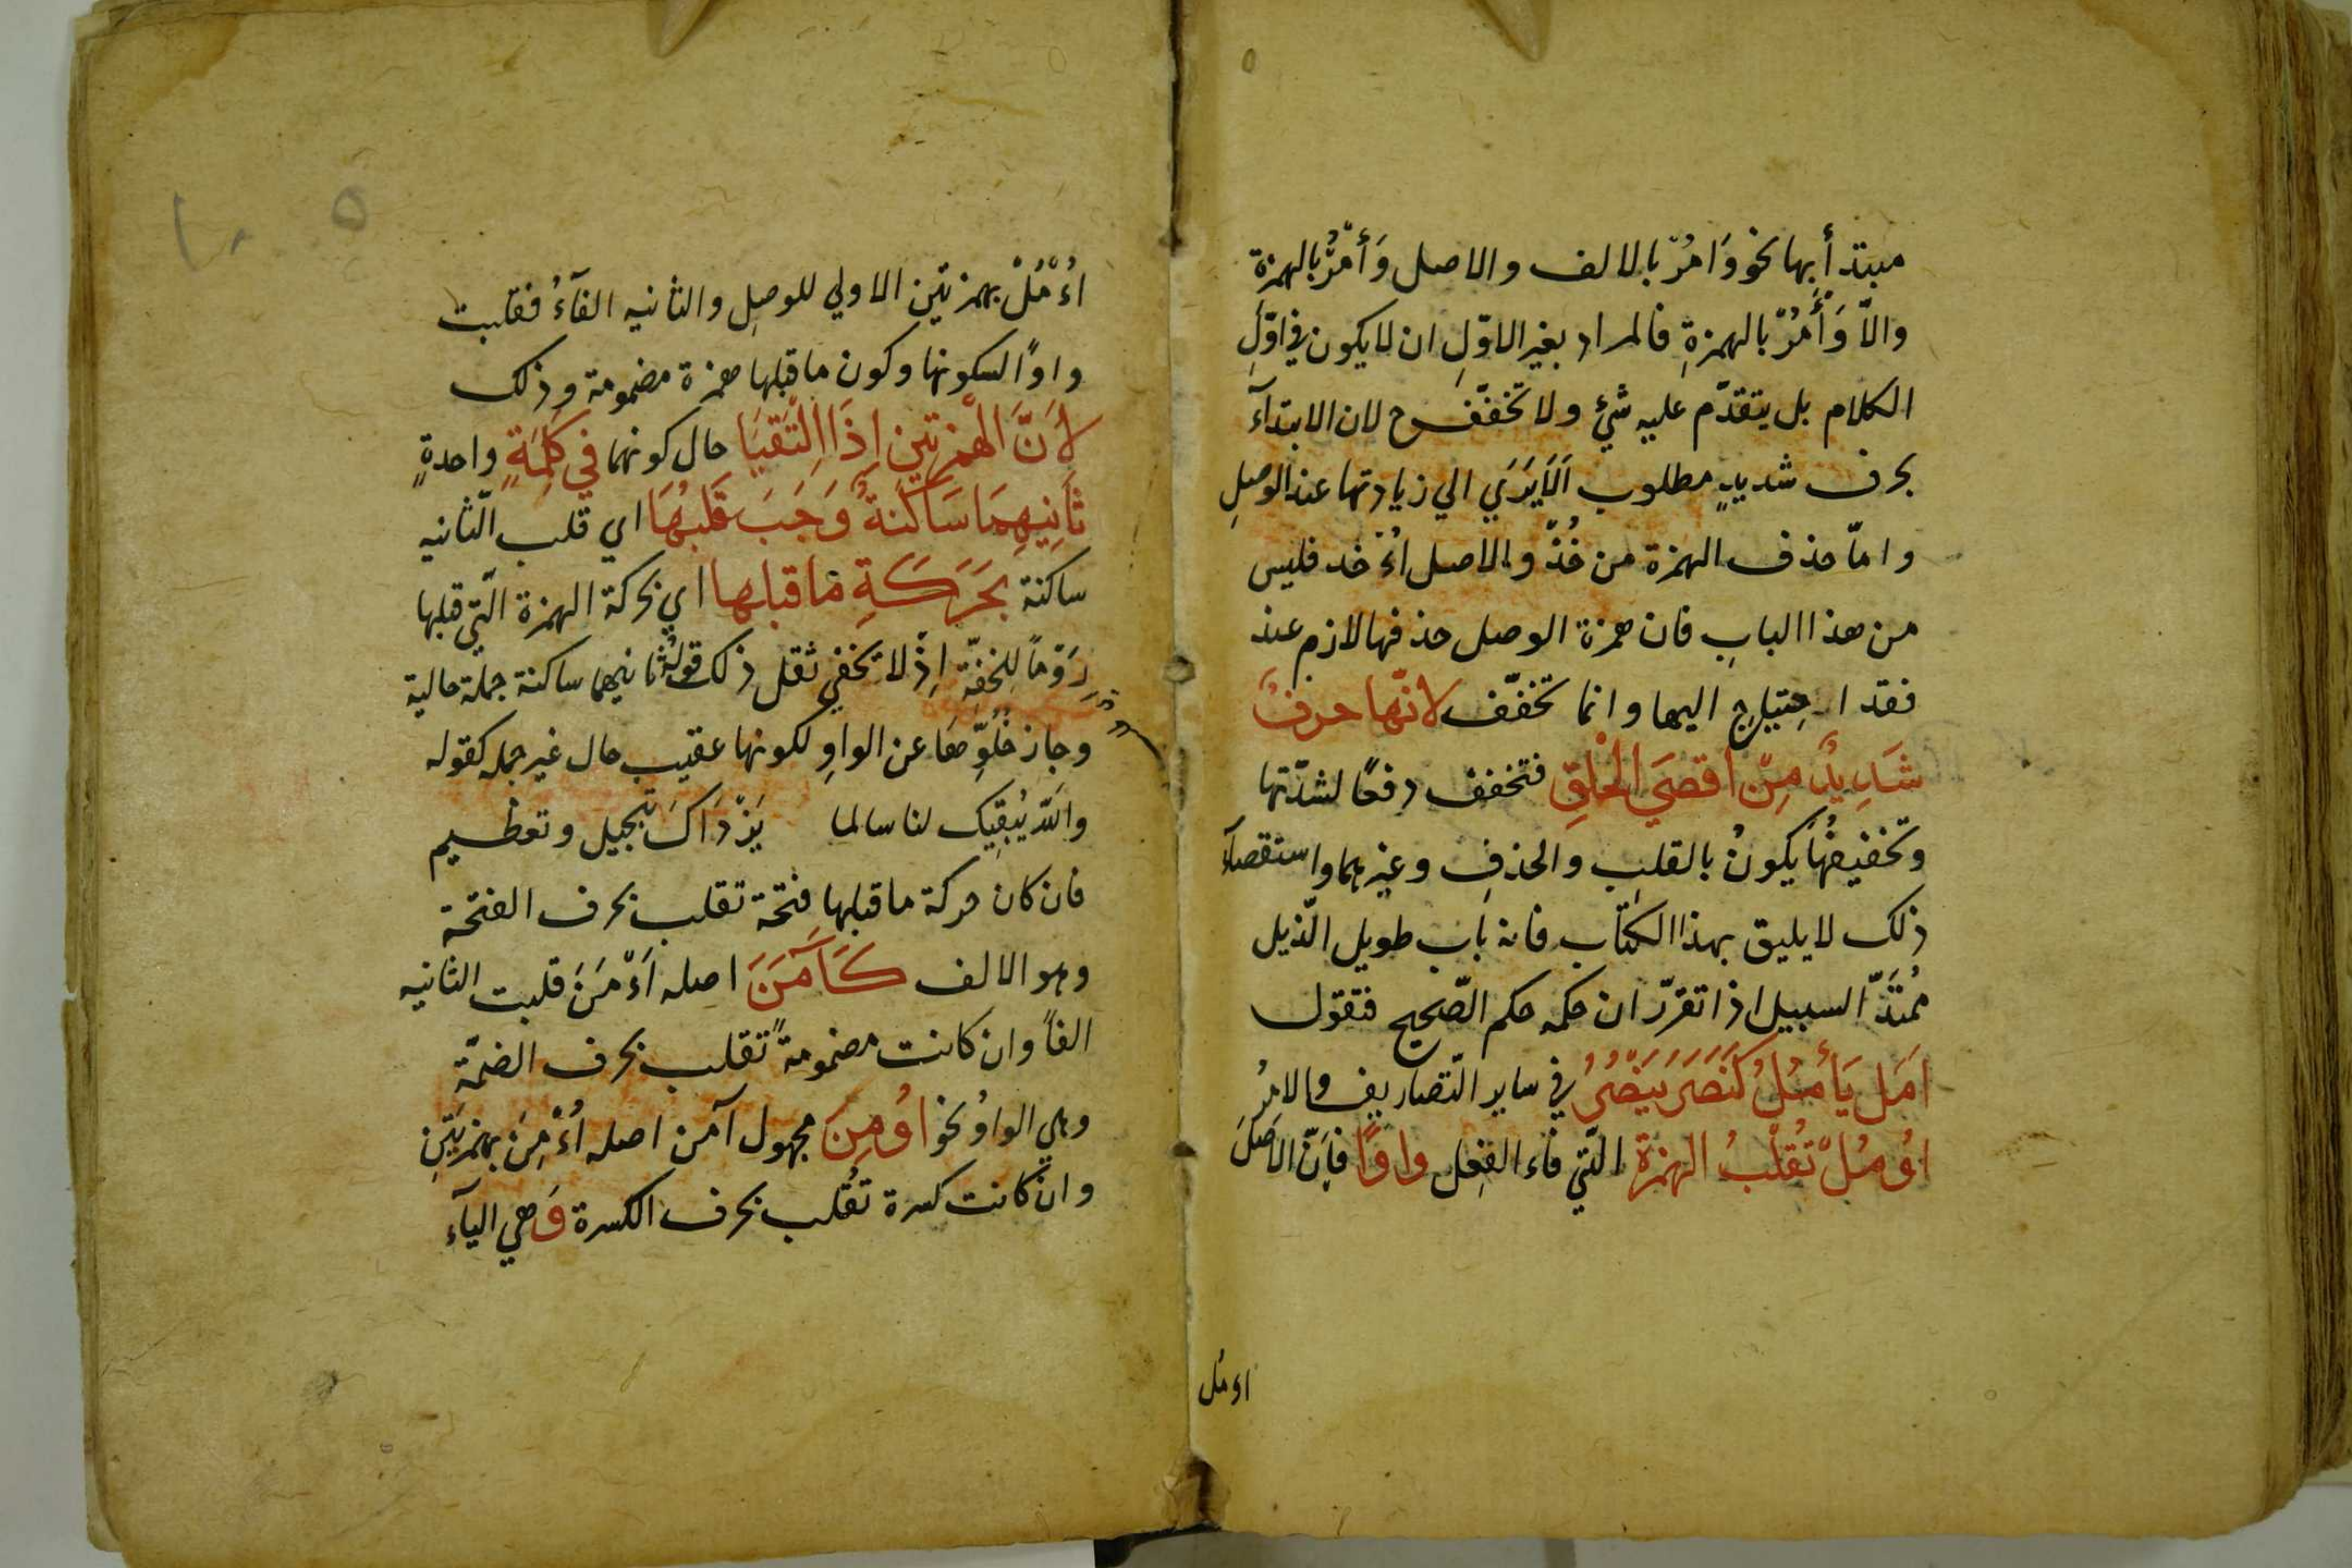 مبتدأ بها نحو وَامُرْ بالالف والاصل وَأْمُرْ بالهمزة
والاّ وَأْمُرْ بالهمزةِ فالمراد بغير الاوّلِ ان لا يكون في اوّلِ
الكلام بل يتقدّم عليه شيْ ولا تخفّف ح لان الابتدآء
بحرف شديدٍ مطلوب اَلَا يَرَي الي زيادتها عند الوصلِ
وامّا حذف الهمزة من خُذْ والاصل اُؤْخُد فليس
من هذا البابِ فان همزة الوصل حذفها لازم عند
فقد احتياج اليها وانما تخفّف لانّها حرفٌ
شَدِيدٌ مِنْ اَقصَي الْحَلقِ فتخفف دفعًا لشدّتها
وتخفيفُها يكونُ بالقلبِ والحذفِ وغيرهما واستقصاء
ذلك لا يليق بهذا الكتاب فانه باب طويل الذّيل
مُمْتَدُّ السبيل اذا تقرّر ان حكمه حكم الصّحيح فتقول
اَمَل يَأْمُلُ كَنَصَرَ يَنْصُرُ في ساير التّصاريف والامْرُ
اُومُلْ تُقْلَبُ الهمزة الّتي فاء الفِعل واوًا فاِنّ الاَصْلَ
اءمل
اُءْمُلْ بهمزتين الاولي للوصلِ والثانيه الفآءُ فقلبت
واوًا لسكونها وكون ما قبلها همزة مضمومة وذلك
لاَنَّ الْهَمْزتين اِذَا الْتَقَيَا حال كونهما في كَلِمَةٍ واحدةٍ
ثَانِيهِمَا سَاكنَةٌ وَجَبَ قَلْبُهَا اي قلب الثّانيه
ساكنة بِحَرَكَةِ مَا قبلها اي بحركة الهمزة الّتي قبلها
رَوْمًا لِلخفّةِ اِذْ لا يخفي ثقل ذلك قوله ثانيهما ساكنة جملة حالية
وجاز خُلُوّها عن الواوِ لكونها عقيب حال غير جمله كقوله
والله يُبقِيك لنا سالما يَزْدَاكَ تبجيل وتعظيم
فان كان حركة ما قبلها فتحة تقلب بحرف الفتحة
وهو الالف كَآمَنَ اصله اَءْمَنَ قلبت الثانيه
الفاً وان كانت مضمومةً تقلب بحرف الضمّة
وهي الواوُ نحو اوُمِنَ مجهول آمن اصله اُءْمِنَ بهمزتَيْنِ
وان كانت كسرة تقُلب بحرف الكسرة وَهي اليآء